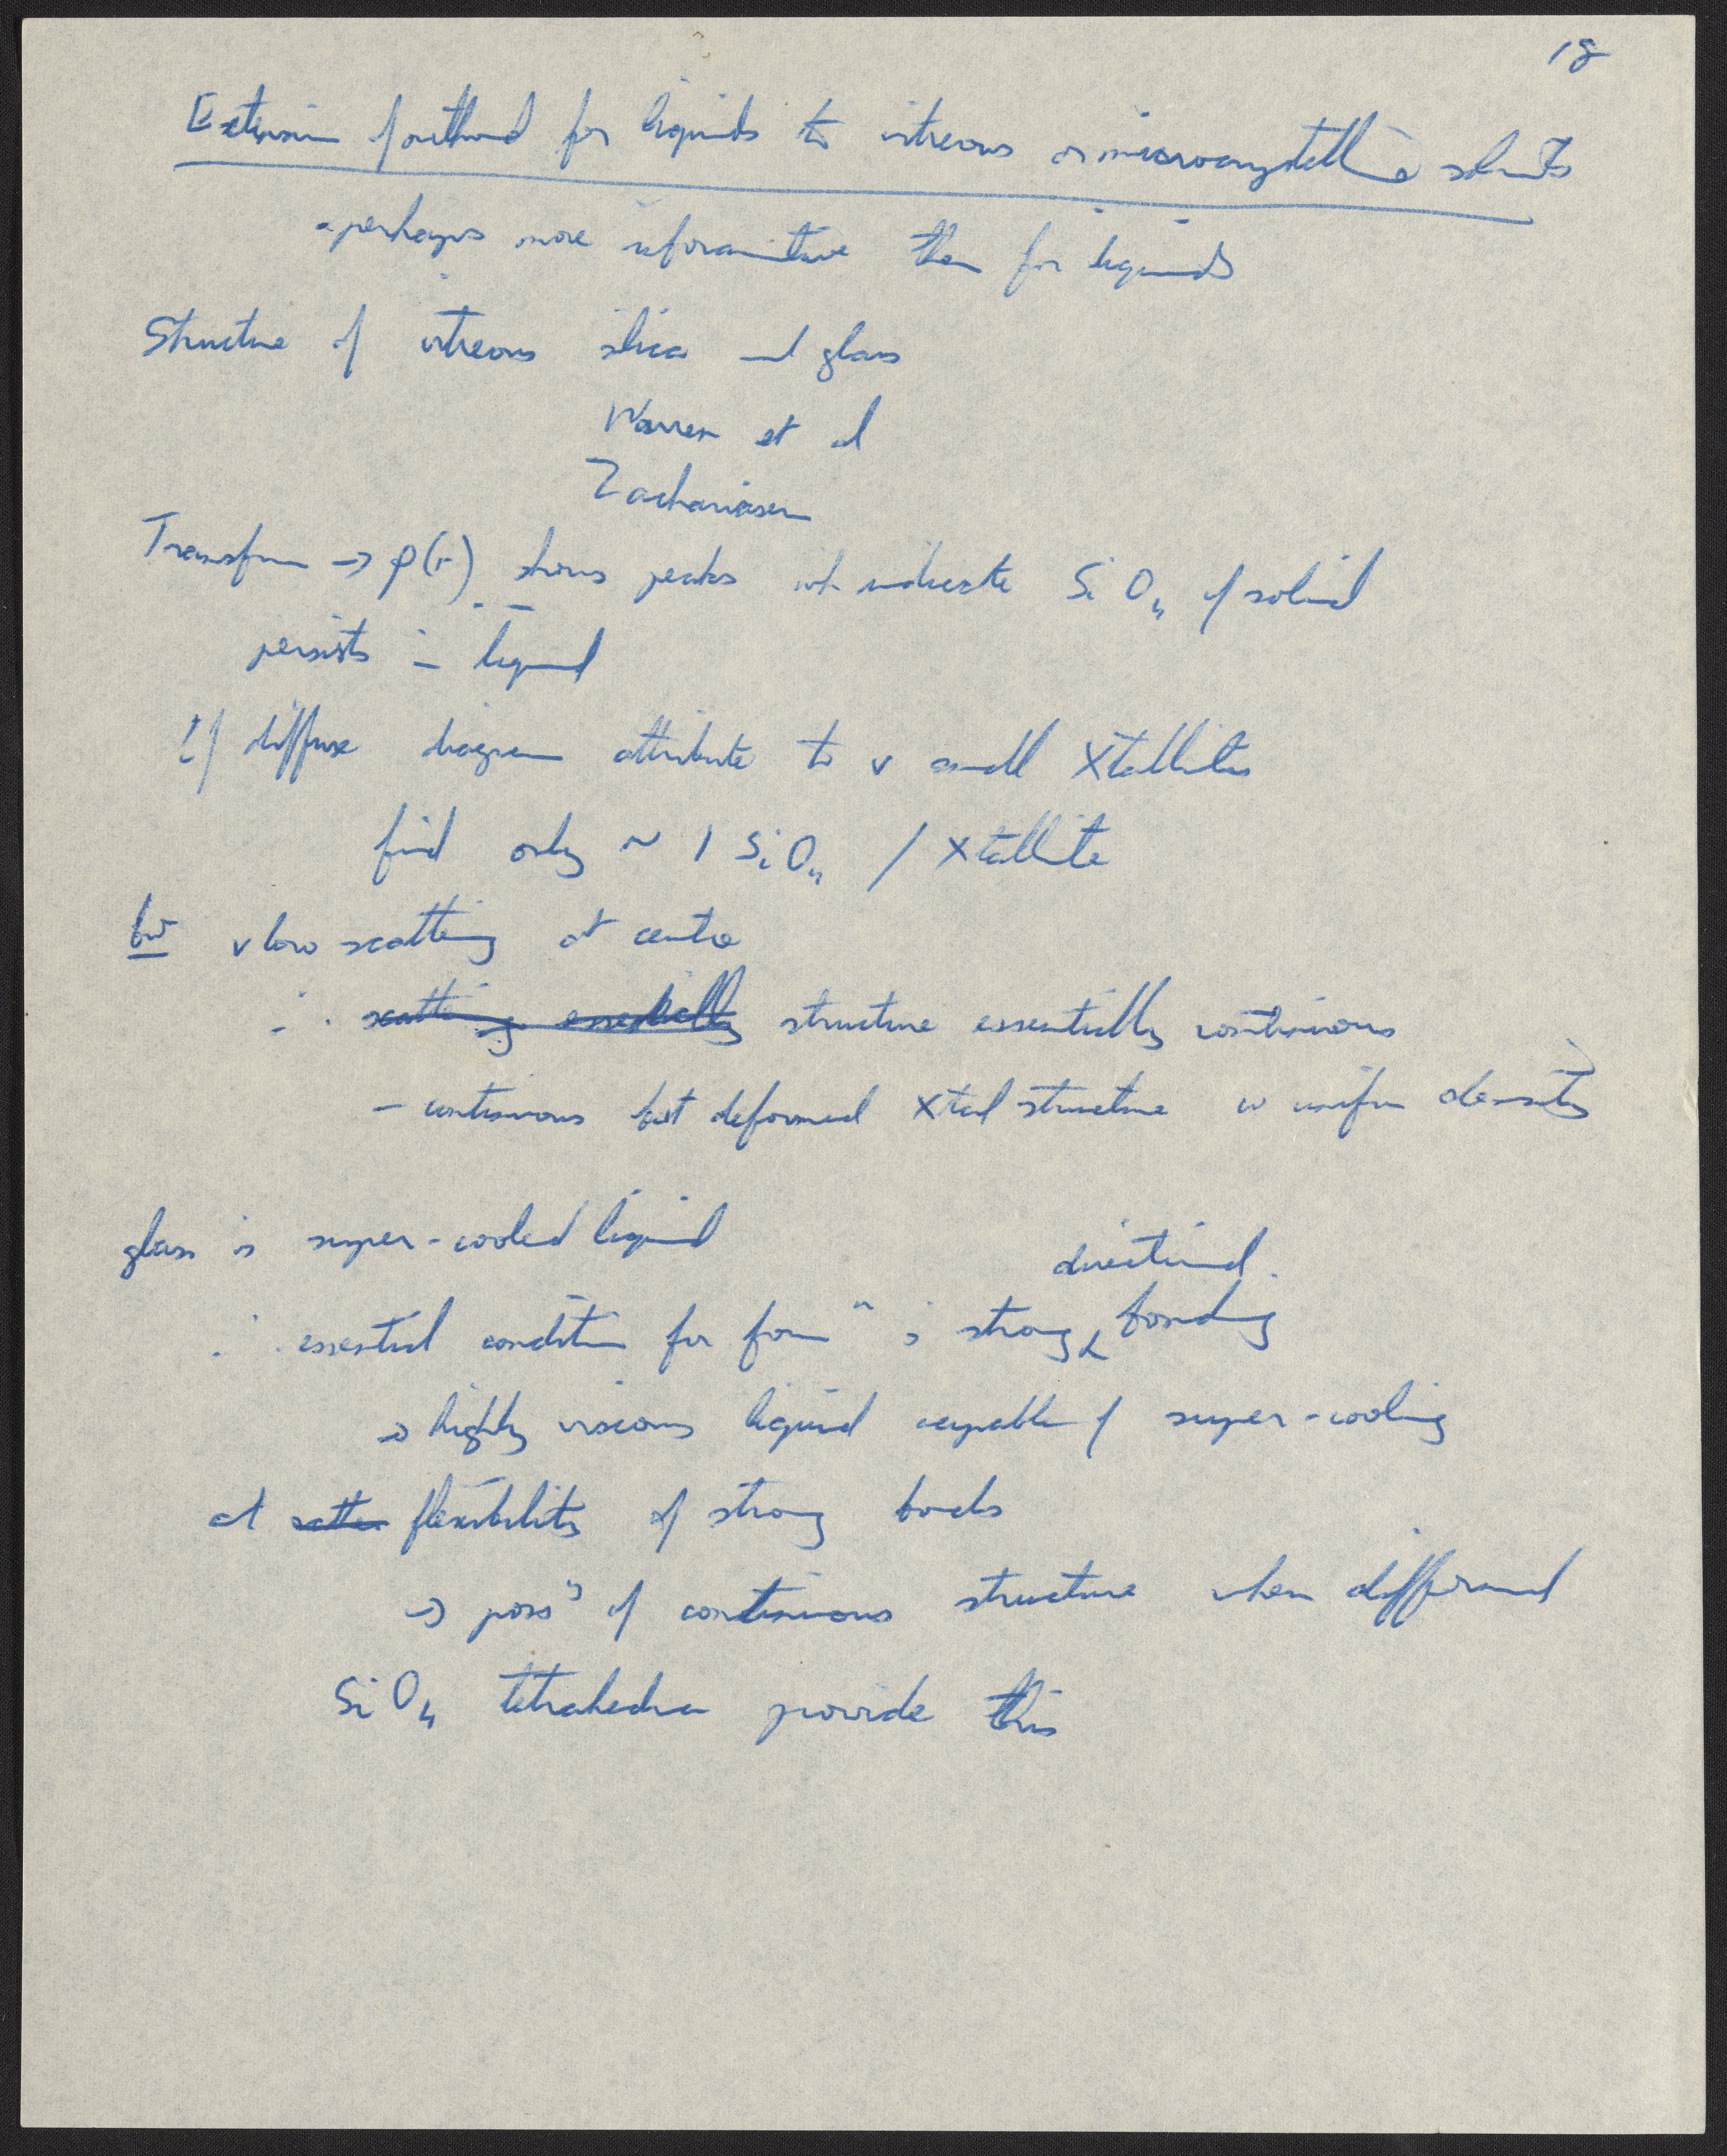 18
Extension of method for liquids to vitreous or microcrystalline solids
- perhaps more informative than for liquids
Structure of vitreous silica and glass
Warren et al
Zachariasen
Transform → ρ(r) shows peaks wh indicate SiO4 of solid
persists in liquid
If diffuse diagram attribute to v small Xtallites
find only ~ 1 SiO4 / Xtallite
but v low scattering at centre
∴ scattering essentially structure essentially continuous
- continuous but deformed Xtal structure w uniform density
glass is super-cooled liquid
directional
∴ essential condition for formn is strong bonding
→ highly viscous liquid capable of super-cooling
and rather flexibility of strong bonds
→ possy of continuous structure when deformed
SiO4 tetrahedra provide this